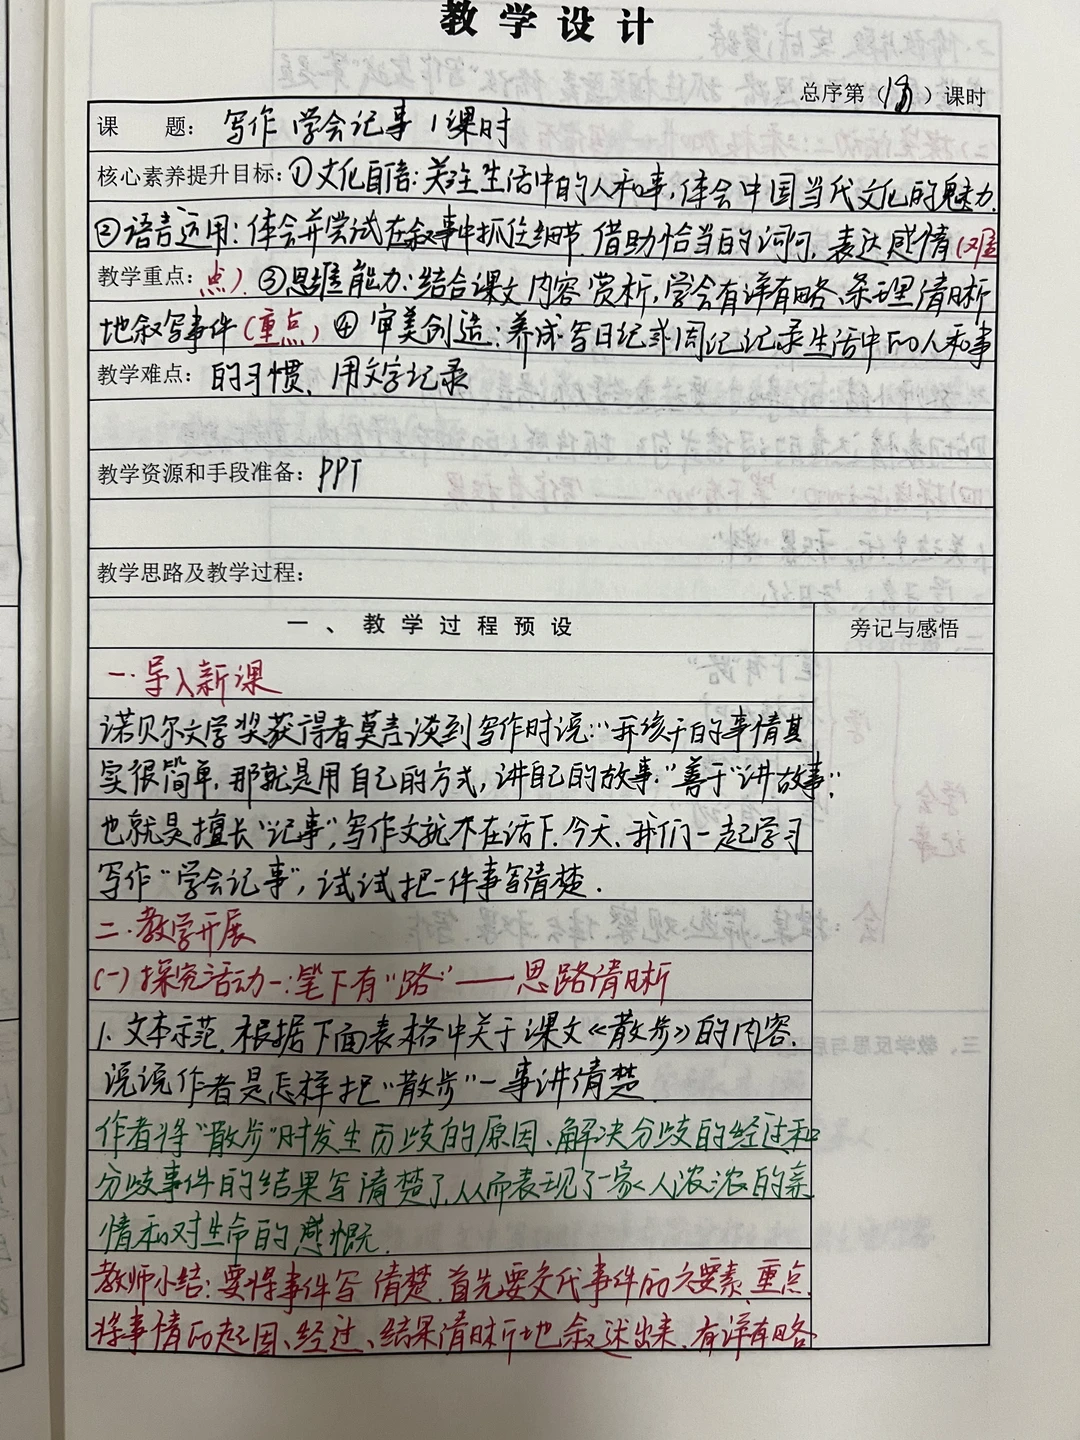 教学设计
总序第（18）课时
课 题：写作 学会记事 1课时
核心素养提升目标：①文化自信：关注生活中的人和事，体会中国当代文化的魅力.
②语言运用：体会并尝试在叙事中抓住细节，借助恰当的词句，表达感情（难
教学重点：点）.③思维能力：结合课文内容赏析，学会有详有略、条理清晰
地叙写事件（重点）④审美创造：养成写日记或周记记录生活中的人和事
教学难点：的习惯，用文字记录
教学资源和手段准备：PPT
教学思路及教学过程：
一、教学过程预设 旁记与感悟
一.导入新课
诺贝尔文学奖获得者莫言谈到写作时说：“ 的事情其
实很简单，那就是用自己的方式，讲自己的故事.”善于“讲故事”，
也就是擅长“记事”，写作文就不在话下.今天，我们一起学习
写作“学会记事”，试试把一件事写清楚.
二.教学开展
(一)探究活动一：笔下有“路”——思路清晰
1.文本示范，根据下面表格中关于课文《散步》的内容，
说说作者是怎样把“散步”一事讲清楚
作者将“散步”时发生 歧的原因、解决分歧的经过和
分歧事件的结果写清楚了，从而表现了一家人浓浓的亲
情和对生命的感慨.
教师小结：要将事件写清楚，首先要交代事件的六要素，重点
将事情的起因、经过、结果清晰地叙述出来，有详有略